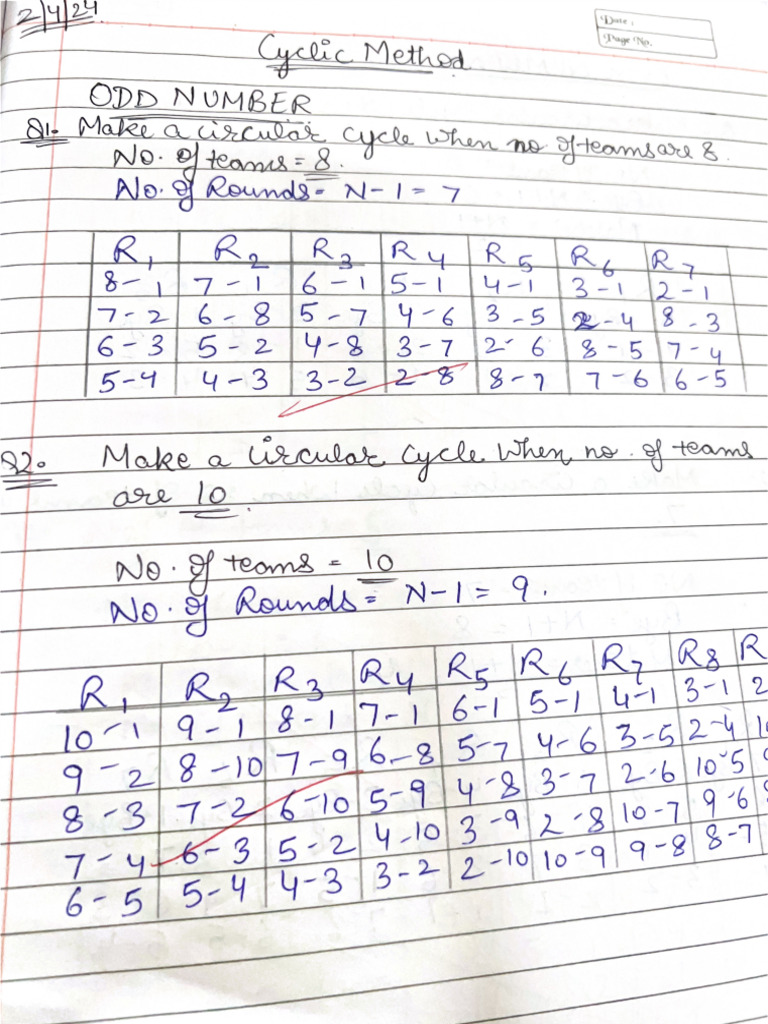 2/4/24
Date :
Page No.
Cyclic Method
ODD NUMBER
Q1. Make a circular cycle when no of teams are 8.
No. of teams = 8.
No. of Rounds = N-1 = 7
R1 R2 R3 R4 R5 R6 R7
8-1 7-1 6-1 5-1 4-1 3-1 2-1
7-2 6-8 5-7 4-6 3-5 2-4 8-3
6-3 5-2 4-8 3-7 2-6 8-5 7-4
5-4 4-3 3-2 2-8 8-7 7-6 6-5
Q2. Make a circular cycle when no. of teams
are 10.
No. of teams = 10
No. of Rounds = N-1 = 9.
R1 R2 R3 R4 R5 R6 R7 R8 R
10-1 9-1 8-1 7-1 6-1 5-1 4-1 3-1 2
9-2 8-10 7-9 6-8 5-7 4-6 3-5 2-4
8-3 7-2 6-10 5-9 4-8 3-7 2-6 10-5
7-4 6-3 5-2 4-10 3-9 2-8 10-7 9-6
6-5 5-4 4-3 3-2 2-10 10-9 9-8 8-7